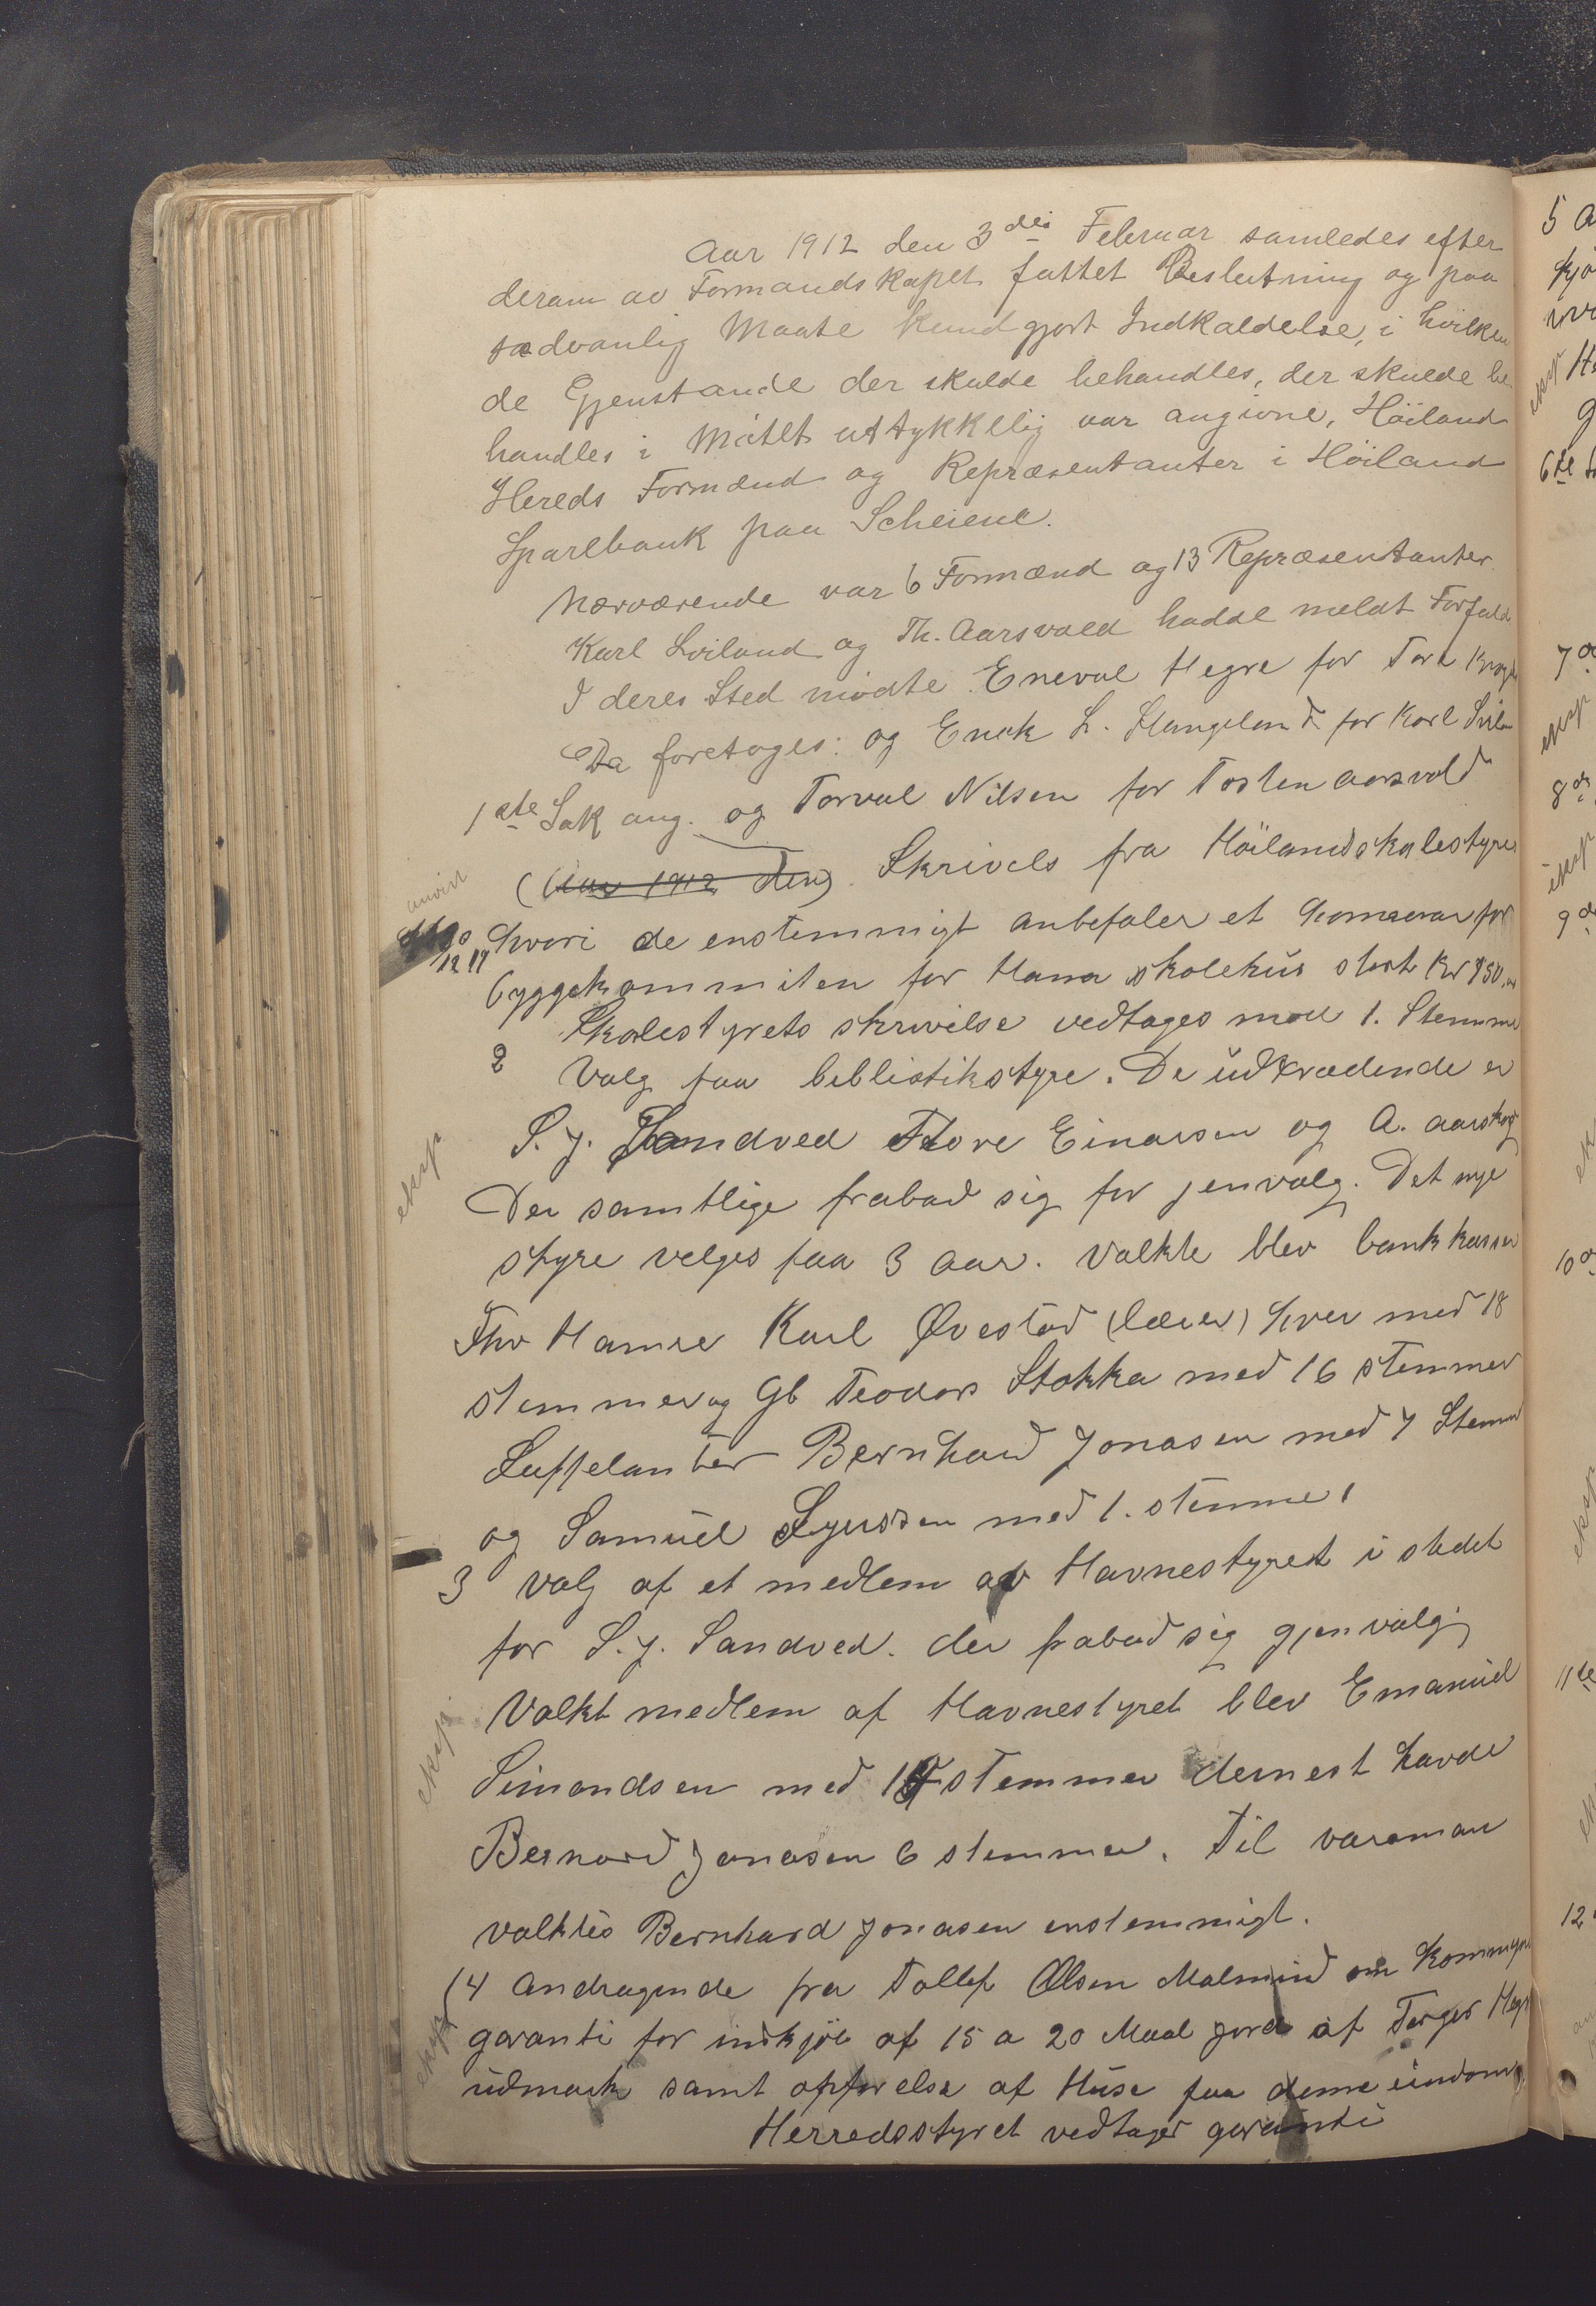 Aar 1912 den 3die Februar samledes efter
derom av Formandskapet fattet Beslutning og paa
sædvanlig Maate kundgjort Indkaldelse, i hvilken
de Gjenstande der skulde behandles, der skulde be
handles i Mötet uttykkelig var angivne, Höiland
Hereds Formænd og Repræsentanter i Höiland
Sparebank paa Scheiene.
Nærværende var 6 Formænd og 13 Repræsentanter
Karl Soiland og Th. Aarsvold hadde meldt Forfald
I deres Sted mödte Eneval Hegre for Tore
Da foretoges: og Enok L. Stangeland for Karl
1ste Sak ang. og Torval Nilsen for Tosten aarsvold
(Aar 1912 den) Skrivels fra Höilandskolestyre
anvist
12 hvori de enstemmigt anbefaler et honorar for
byggekommiten for Hana skolehus stort Kr
Skolestyrets skrivelse vedtages mod 1. Stemme
2 Valg paa biblistikstyre. De udtrædende er
S. J. Sandved Tore Einarsen og A. aarskog
eksp
Der samtlige frabad sig for jenvalg. Det nye
styre velges paa 3 aar. Valkte blev bankkasser
Thv Hamre Karl Øvestad (lærer) hver med 18
stemmer og Gb Teodor Stokka med 16 stemmer
Suppelanter Bernhard Jonasen med 7 Stemmer
og Samuel med 1. stemme
3 Valg af et medlem av Havnestyret i stedet
for S. J. Sandved. der frabad sig gjenvalg
eksp.
Valkt medlem af Havnestyret blev Emanuel
Simondsen med stemmer dernest havde
Bernard Jonasen 6 stemmer. Til varaman
valktes Bernhard Jonasen enstemmigt.
4 Andragende fra Tollef Olsen Malmind om Kommyne
eksp
garanti for indkjöb af 15 a 20 Maal jord af Torger Hegre
udmark samt opførelse af Huse paa denne eindom
Herredsstyret vedtager garanti